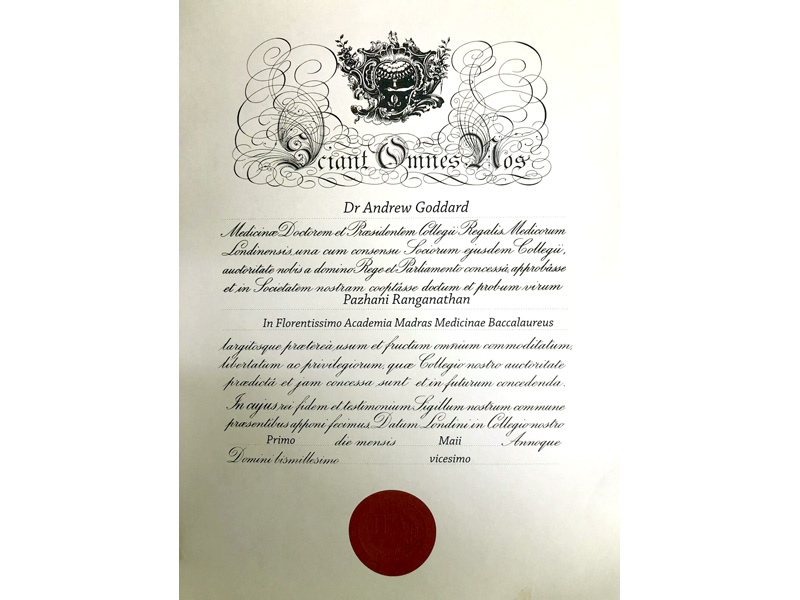 Sciant Omnes Nos
Dr Andrew Goddard
Medicinæ Doctorem et Præsidentem Collegii Regalis Medicorum
Londinensis, una cum consensu Sociorum ejusdem Collegii,
auctoritate nobis a domino Rege et Parliamento concessâ, approbâsse
et in Societatem nostram cooptâsse doctum et probum virum
Pazhani Ranganathan
In Florentissimo Academia Madras Medicinae Baccalaureus
largitosque prætereà usum et fructum omnium commoditatum,
libertatum ac privilegiorum, quæ Collegio nostro auctoritate
prædictâ et jam concessa sunt et in futurum concedenda.
In cujus rei fidem et testimonium Sigillum nostrum commune
præsentibus apponi fecimus. Datum Londini in Collegio nostro
Primo die mensis Maii Annoque
Domini bismillesimo vicesimo